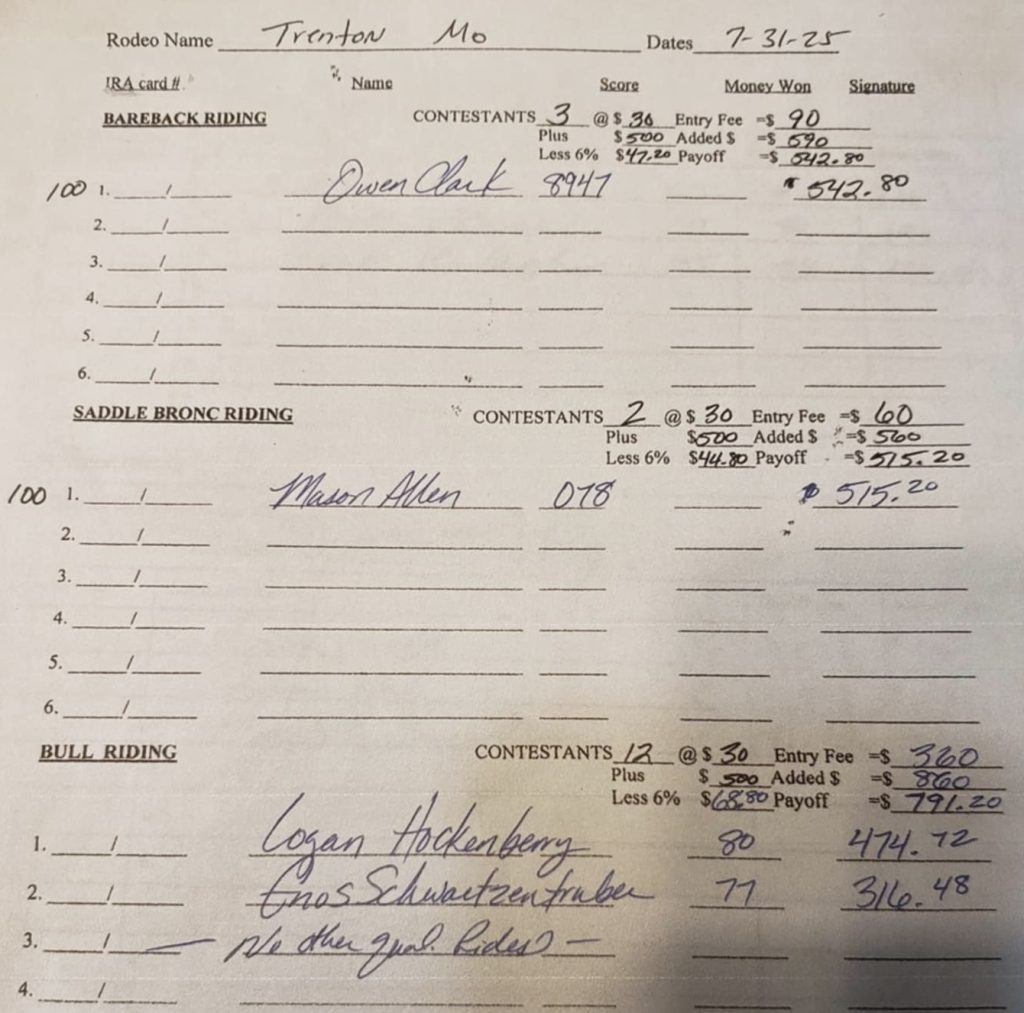 Rodeo Name Trenton Mo Dates 7-31-25
IRA card # Name Score Money Won Signature
BAREBACK RIDING CONTESTANTS 3 @ $ 30 Entry Fee =$ 90
Plus $ 500 Added $ =$ 590
Less 6% $47.20 Payoff =$ 542.80
100 1. / Owen Clark 8947 $ 542.80
2. /
3. /
4. /
5. /
6. /
SADDLE BRONC RIDING CONTESTANTS 2 @ $ 30 Entry Fee =$ 60
Plus $500 Added $ =$ 560
Less 6% $44.80 Payoff =$ 515.20
100 1. / Mason Allen 078 $ 515.20
2. /
3. /
4. /
5. /
6. /
BULL RIDING CONTESTANTS 12 @ $ 30 Entry Fee =$ 360
Plus $ 500 Added $ =$ 860
Less 6% $68.80 Payoff =$ 791.20
1. / Logan Hockenberry 80 474.72
2. / Enos Schwartzentruber 77 316.48
3. / — No other qual. Rides —
4. /